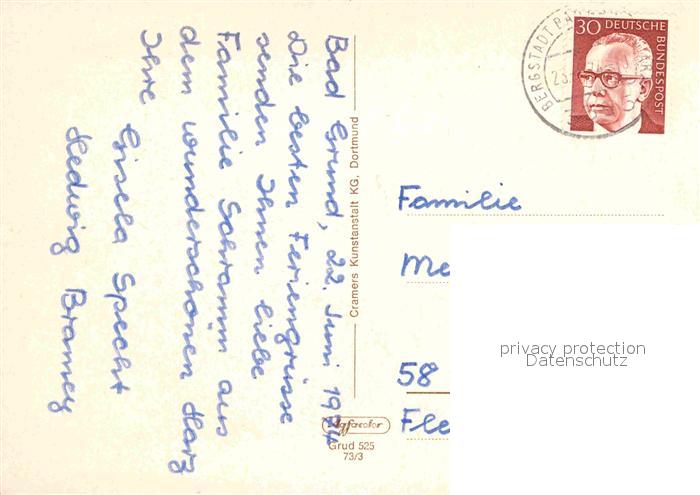 Bad Grund, 22. Juni 1974
Die besten Feriengrüsse
senden Ihnen liebe
Familie Schramm aus
dem wunderschönen Harz
Ihre
Gisela Specht
Hedwig Bramey
Cramers Kunstanstalt KG, Dortmund
Agfacolor
Grud 525
73/3
30 DEUTSCHE
BUNDESPOST
BERGSTADT
Familie
Me
58
Fle
privacy protection
Datenschutz